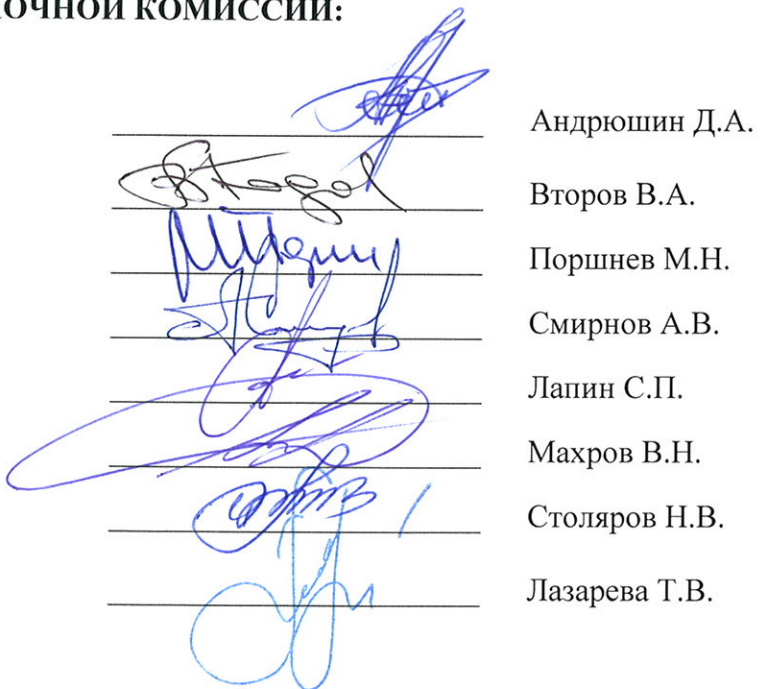 КОМИССИИ:
Андрюшин Д.А.
Второв В.А.
Поршнев М.Н.
Смирнов А.В.
Лапин С.П.
Махров В.Н.
Столяров Н.В.
Лазарева Т.В.